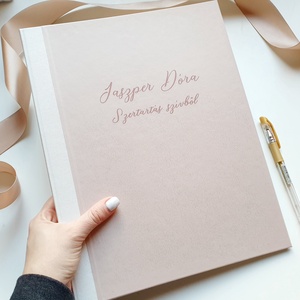 Jaszper Dóra
Szertartás szívből